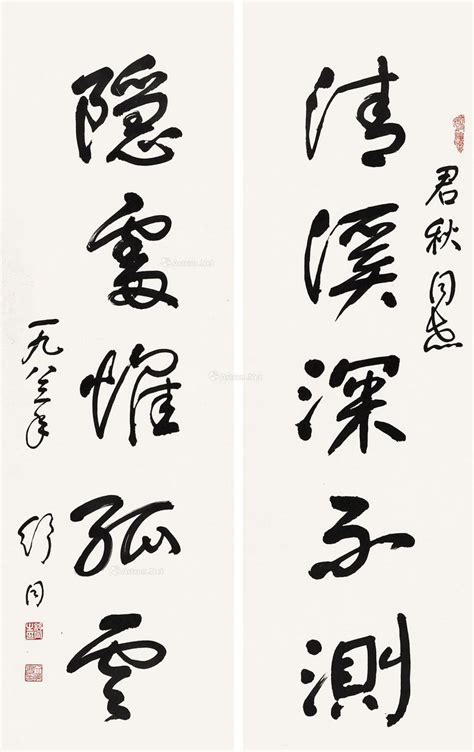 君秋同志
清溪深不測
隐處惟孤雲
一九八三年 舒同
Artron.Net